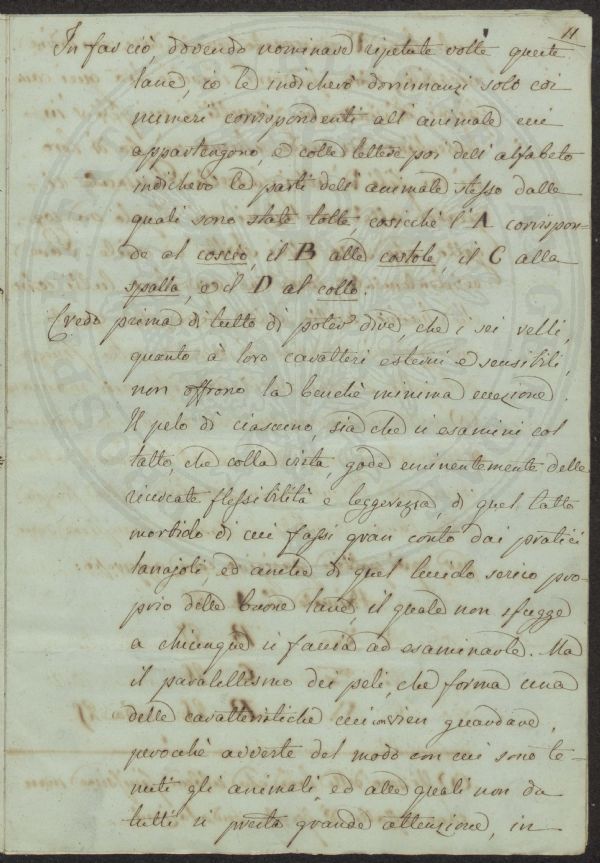 11
In far ciò, dovendo nominare ripetute volte queste
lane, io le indicherò dorinnanzi solo coi
numeri corrispondenti all'animale cui
appartengono, e colle lettere poi dell'alfabeto
indicherò le parti dell'animale stesso dalle
quali sono state tolte, cosicchè l'A corrispon-
de al coscio, il B alle costole, il C alla
spalla, e il D al collo.
Credo prima di tutto di poter dire, che i sei velli,
quanto a loro caratteri esterni e sensibili,
non offrono la benchè minima eccezione.
Il pelo di ciascuno, sia che si esamini col
tatto, che colla vista, gode eminentemente delle
ricercate flessibilità e leggerezza, di quel tatto
morbido di cui fassi gran conto dai pratici
lanajoli, ed anche di quel lucido serico pro-
prio delle buone lane, il quale non sfugge
a chiunque si faccia ad esaminarle. Ma
il paralellismo dei peli, che forma una
delle caratteristiche cui convien guardare,
perocchè avverte del modo con cui sono te-
nuti gli animali, ed alle quali non da
tutti si presta grande attenzione, in